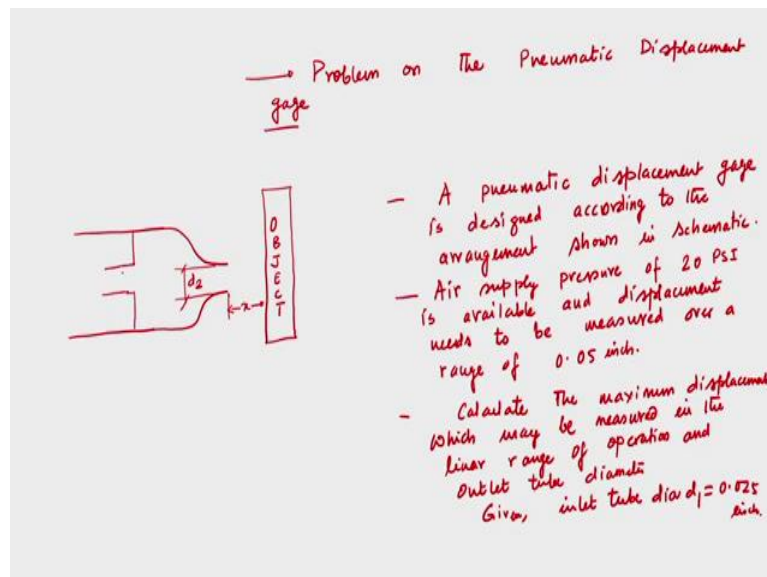 Problem on The Pneumatic Displacement
gage
OBJECT
d2
x
- A pneumatic displacement gage
is designed according to the
arrangement shown in schematic.
- Air supply pressure of 20 PSI
is available and displacement
needs to be measured over a
range of 0.05 inch.
- Calculate The maximum displacemen
which may be measured in the
linar range of operation and
outlet tube diamete
Given, inlet tube dia d1 = 0.025
inch.